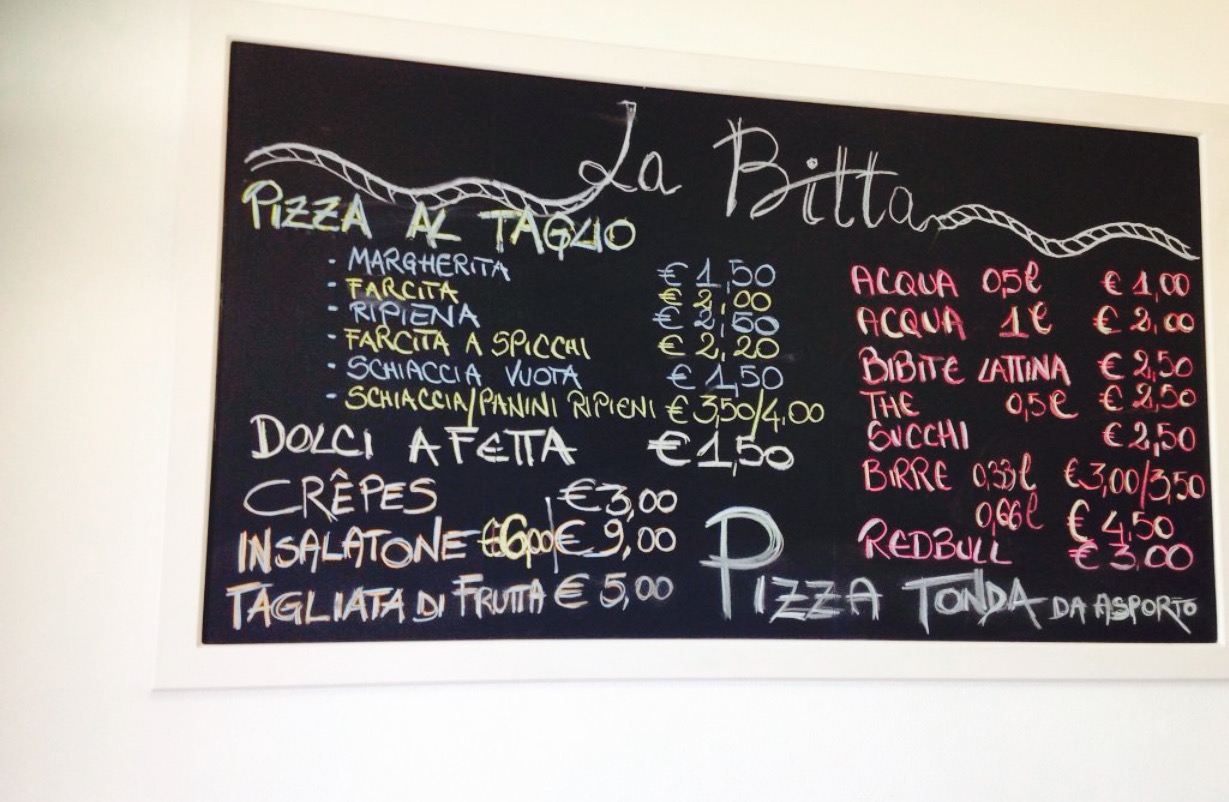 La Bitta
PIZZA AL TAGLIO
· MARGHERITA € 1,50
· FARCITA € 2,00
· RIPIENA € 2,50
· FARCITA A SPICCHI € 2,20
· SCHIACCIA VUOTA € 1,50
· SCHIACCIA/PANINI RIPIENI € 3,50/4,00
DOLCI A FETTA € 1,50
CRÊPES € 3,00
INSALATONE €6,00|€ 9,00
TAGLIATA DI FRUTTA € 5,00
ACQUA 0,5l € 1,00
ACQUA 1l € 2,00
BIBITE LATTINA € 2,50
THE 0,5l € 2,50
SUCCHI € 2,50
BIRRE 0,33l €3,00/3,50
0,66l € 4,50
REDBULL € 3,00
PIZZA TONDA DA ASPORTO